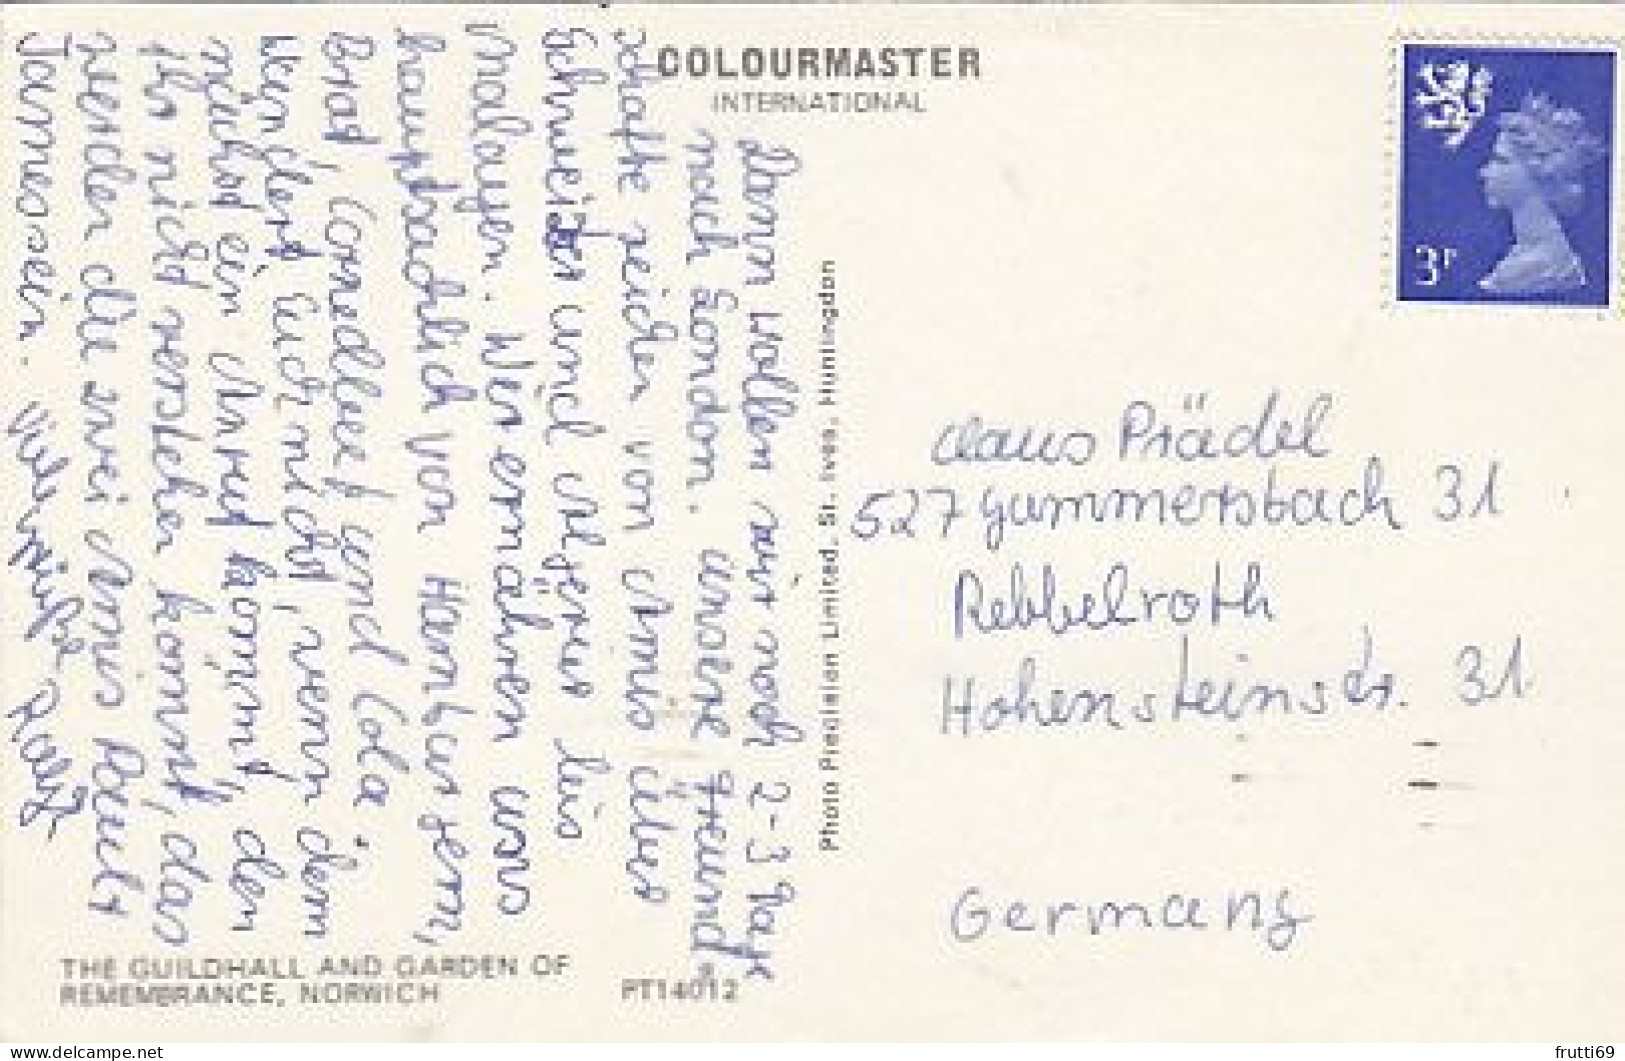 COLOURMASTER
INTERNATIONAL
3P
Dann wollen wir noch 2-3 Tage
nach London. Unsere Freund
schafte reichen von Amis über
Schweizer und Algerus bis
Malayen. Wir ernähren uns
hauptsächlich von Hamburgern,
Brot, Cornedbeef und Cola.
Verjßert Euch nicht, wenn dem
mächst ein Anruf kommt, den
Ihr nicht verstehen könnt, das
werden die zwei Amis Pauls
Jameosein. Viele Grüße Ralf
Photo Precision Limited, St. Ives, Huntingdon
Claus Prädel
527 Gummersbach 31
Rebbelroth
Hohensteinstr. 31
Germany
THE GUILDHALL AND GARDEN OF
REMEMBRANCE, NORWICH
PT14012
delcampe.net
frutti69